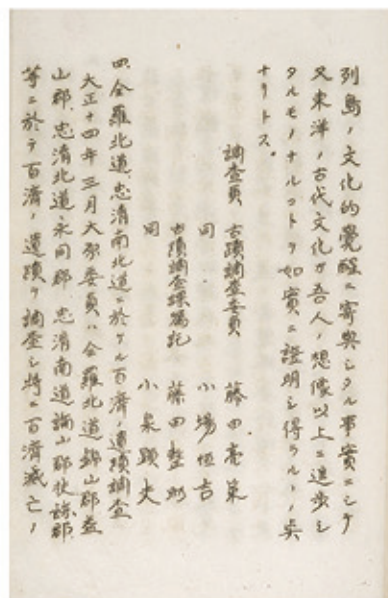 列島ノ文化的覺醒ニ寄與シタル事實ニシテ
又東洋ノ古代文化ガ吾人ノ想像以上ニ進歩シ
タルモノナルコトヲ如實ニ證明シ得ラルヽノ矣
ナリトス。
調査員 古蹟調査委員 藤田亮策
同 小場恒吉
古蹟調査囑託 藤田整助
同 小泉顕夫
四、全羅北道、忠清南北道ニ於ケル百濟ノ遺蹟調査
大正十四年三月大原委員ハ全羅北道錦山郡益
山郡、忠清北道永同郡 忠清南道論山郡扶餘郡
等ニ於テ百濟ノ遺蹟ヲ調査シ將ニ百濟滅亡ノ